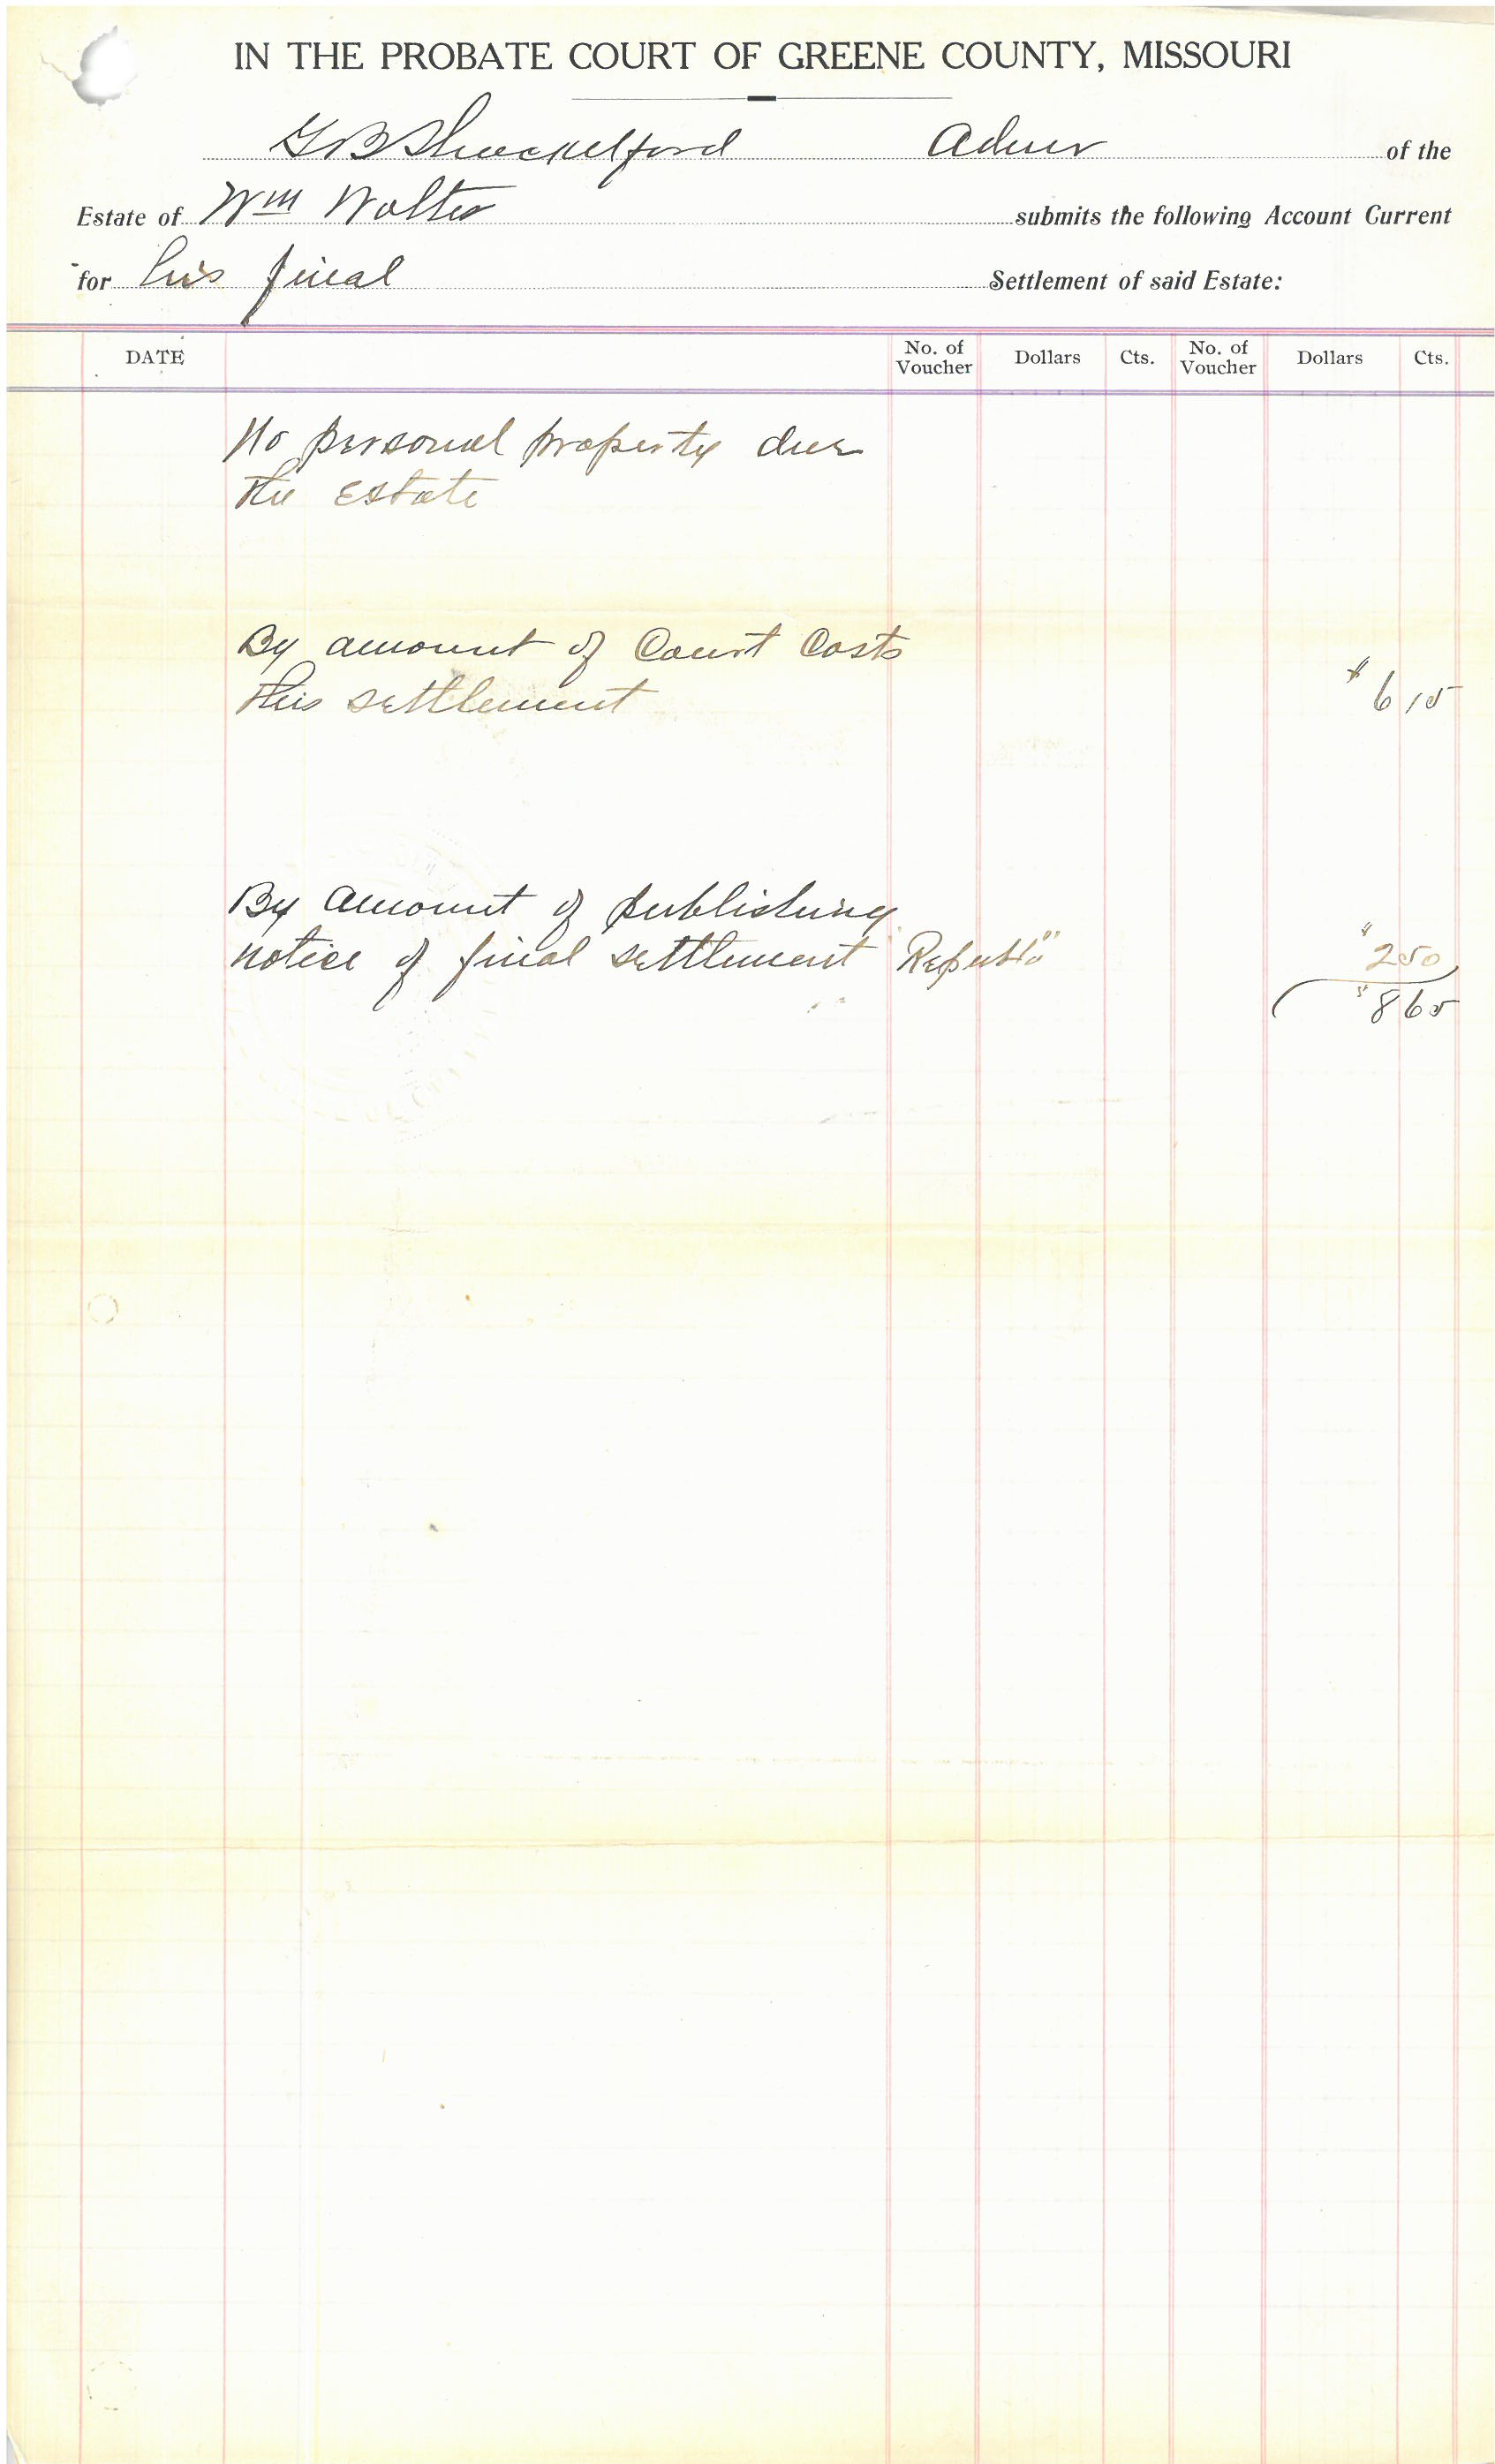 IN THE PROBATE COURT OF GREENE COUNTY, MISSOURI
G B Shackelford Admr of the
Estate of Wm Wolter submits the following Account Current
for his final Settlement of said Estate:
DATE No. of Voucher Dollars Cts. No. of Voucher Dollars Cts.
No personal property due
the Estate
By amount of Court Costs
this settlement $ 6 15
By amount of publishing
notice of final settlement " 2 50
" 8 65